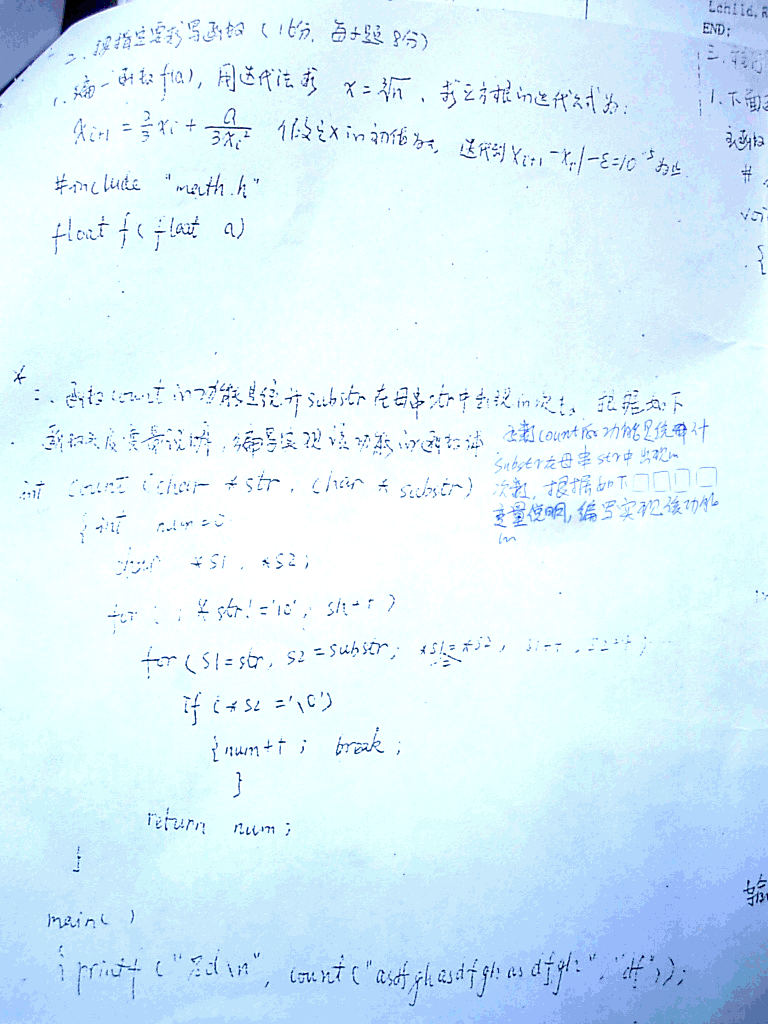 二、按指定要求写函数（16分，每小题8分）
1. 编一函数f(a)，用迭代法求 x=∛a，求立方根的迭代公式为：
X_{i+1} = 2/3 x_i + a/3X_i² 假定X的初值为a，迭代到|X_{i+1}-X_i|-ε=10^{-5}为止
#include "math.h"
float f(float a)
二、函数count的功能是统计substr在母串str中出现的次数。根据如下
函数头及变量说明，编写实现该功能的函数体
函数count的功能是统计
substr在母串str中出现的
次数，根据如下□□□□
变量说明，编写实现该功能
的
int count (char *str, char *substr)
{int num=0
char *S1, *S2;
for ( ; *str!='\0'; str++)
for (S1=str, S2=substr; *S1=*S2; S1++, S2++)
if (*S2 ='\0')
{num++; break;
}
return num;
}
main( )
{printf ("%d\n", count("asdfghasdfghasdfgh", "df"));
Lchild,R
END;
三、
1. 下面
#
voi
{
输